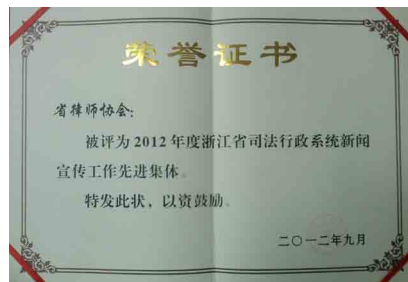 荣誉证书
省律师协会：
被评为2012年度浙江省司法行政系统新闻
宣传工作先进集体。
特发此状，以资鼓励。
二〇一二年九月